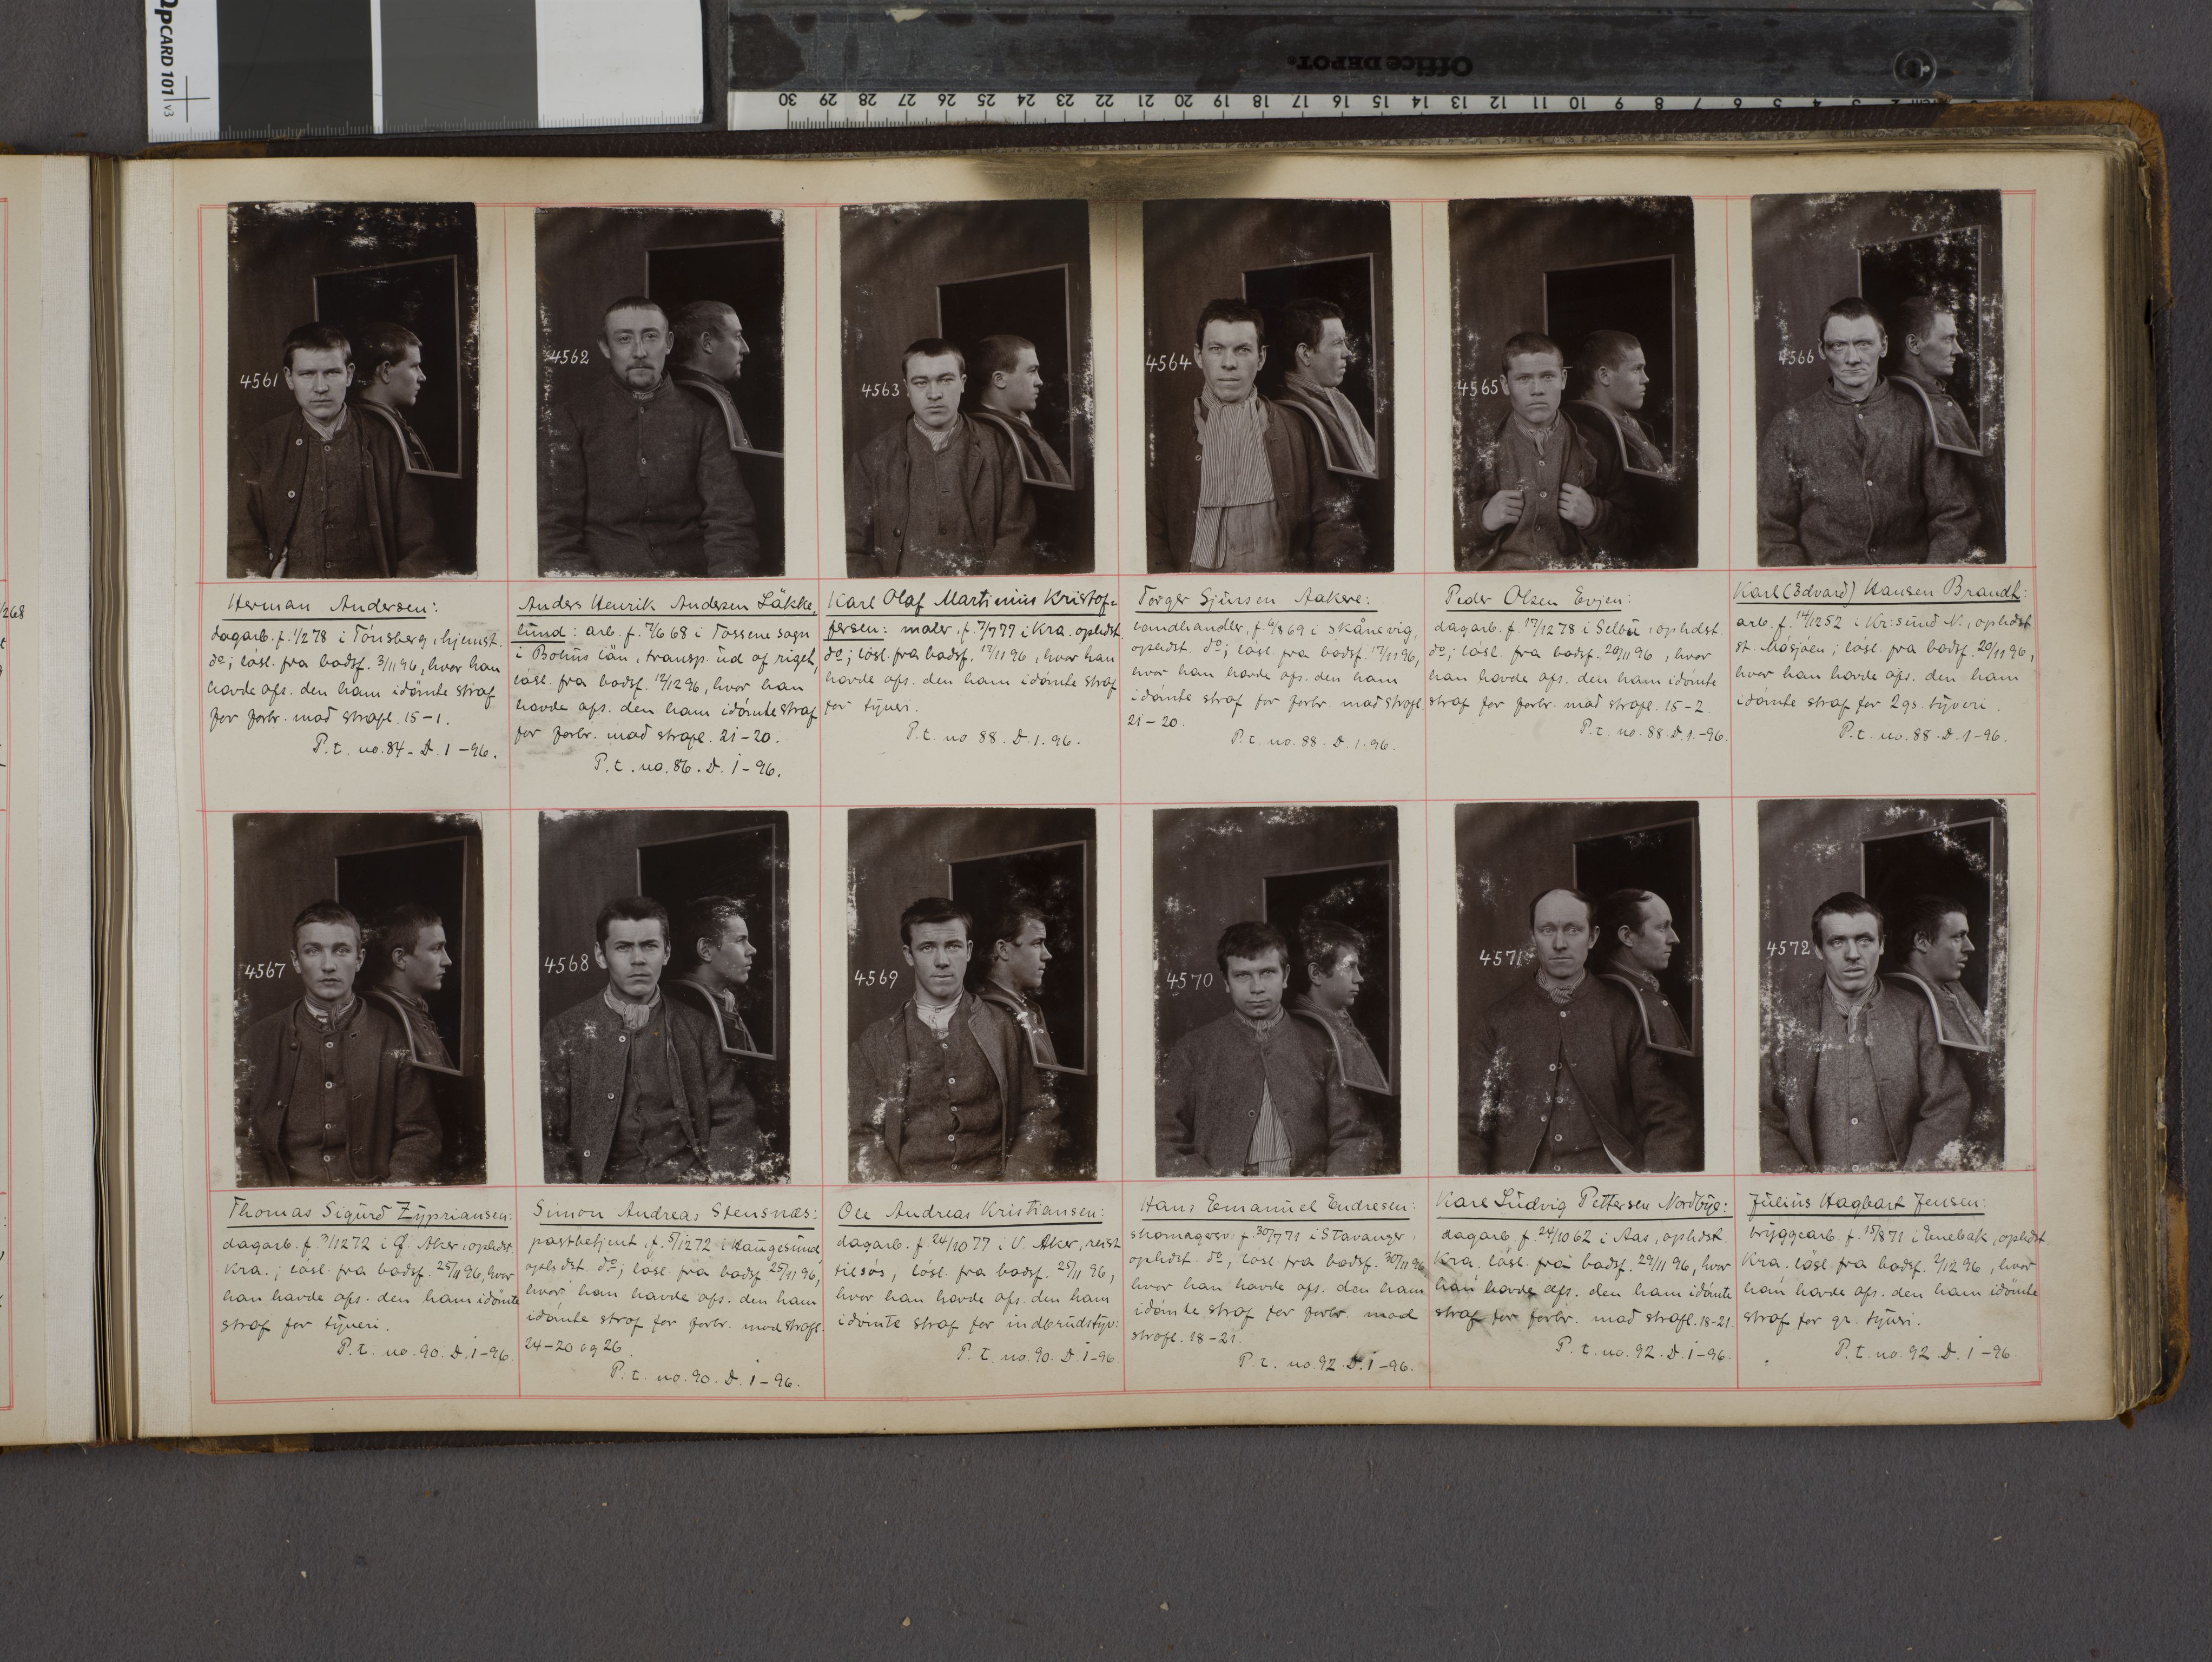 OpCARD 101 v3
Office DEPOT
30 29 28 27 26 25 24 23 22 21 20 19 18 17 16 15 14 13 12 11 10 9 8 7 6 5 4 3 2
4561
4562
4563
4564
4565
4566
Herman Andersen:
dagarb. f. 1/2 78 i Tönsberg, hjemst.
do; lösl. fra bodsf. 3/11 96, hvor han
havde afs. den ham idömte straf
for forbr. mod strafl. 15-1.
P.t. no. 84. D. 1-96.
Anders Henrik Andersen Läkke-
lund: arb. f. 7/6 68 i Tossene sogn
i Bohus län, transp. ud af riget,
lösl. fra bodsf. 12/12 96, hvor han
havde afs. den ham idömte straf
for forbr. mod strafl. 21-20.
P.t. no. 86. D. 1-96.
Karl Olaf Martinius Kristof-
fersen: maler, f. 7/7 77 i Kra. opholdst.
do; lösl. fra bodsf. 17/11 96, hvor han
havde afs. den ham idömte straf
for tyveri.
P.t. no 88. D. 1. 96.
Torger Sjursen Aakere:
landhandler, f. 6/8 69 i Skånevig,
opholdst. do; lösl. fra bodsf. 17/11 96,
hvor han havde afs. den ham
idömte straf for forbr. mod strafl.
21-20.
P.t. no. 88. D. 1. 96.
Peder Olsen Evjen:
dagarb. f. 17/12 78 i Selbu, opholdst.
do; lösl. fra bodsf. 20/11 96, hvor
han havde afs. den ham idömte
straf for forbr. mod strafl. 15-2.
P.t. no. 88. D. 1.-96.
Karl (Edvard) Hansen Brandt:
arb. f. 14/12 52 i Kr:sund N., opholdst
st. Mosjöen; lösl. fra bodsf. 20/11 96,
hvor han havde afs. den ham
idömte straf for 2 gs. tyveri.
P.t. no. 88. D. 1-96.
4567
4568
4569
4570
4571
4572
Thomas Sigurd Zypriansen:
dagarb. f. 3/12 72 i Ö. Aker, opholdst.
Kra.; lösl. fra bodsf. 25/11 96, hvor
han havde afs. den ham idömte
straf for tyveri.
P.t. no. 90. D. 1-96.
Simon Andreas Stensnæs:
postbetjent, f. 5/12 72 i Haugesund,
opholdst. do; lösl. fra bodsf. 25/11 96,
hvor han havde afs. den ham
idömte straf for forbr. mod strafl.
24-20 og 26.
P.t. no. 90. D. 1-96.
Ole Andreas Kristiansen:
dagarb. f. 24/10 77 i V. Aker, reist
tilsös, lösl. fra bodsf. 25/11 96,
hvor han havde afs. den ham
idömte straf for indbrudstyv:
P.t. no. 90. D. 1-96
Hans Emanuel Endresen:
skomagersv: f. 30/7 71 i Stavanger,
opholdst. do, lösl. fra bodsf. 30/11 96
hvor han havde afs. den ham
idömte straf for forbr. mod
strafl. 18-21.
P.t. no. 92. D. 1-96.
Karl Ludvig Pettersen Nordbye:
dagarb. f. 24/10 62 i Aas, opholdst.
Kra. lösl. fra bodsf. 29/11 96, hvor
han havde afs. den ham idömte
straf for forbr. mod strafl. 18-21.
P.t. no. 92. D. 1-96.
Julius Hagbart Jensen:
bryggearb. f. 15/8 71 i Enebak, opholdst
Kra. lösl. fra bodsf. 2/12 96, hvor
han havde afs. den ham idömte
straf for gr. tyveri.
P.t. no. 92 D. 1-96.